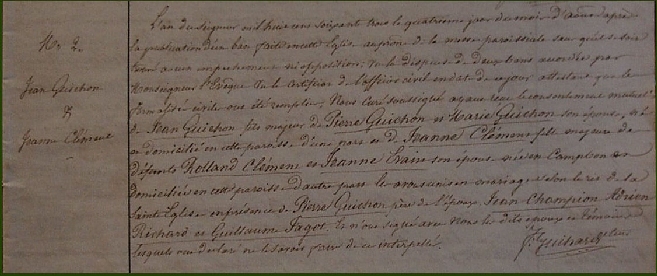 No 2.
Jean Guichon
&
Jeanne Clément
L'an du seigneur mil huit cent soixante trois le quatrième jour du mois d' après
la publication d'un ban faite en cette Eglise au prône de la messe paroissiale sans qu'il se soit
trouvé aucun empêchement ni opposition. Vu la dispense de deux bans accordée par
Monseigneur l'Evêque Vu le certificat de l'officier civil en date de ce jour attestant que les
formalités civiles ont été remplies, Nous Curé soussigné ayant reçu le consentement mutuel
de Jean Guichon fils majeur de Pierre Guichon et Marie Guichon son épouse, né
et domicilié en cette paroisse d'une part et de Jeanne Clément fille majeure de
défunts Rolland Clément et Jeanne son épouse née en Campbon et
domiciliée en cette paroisse d'autre part les avons unis en mariage selon les rites de la
Sainte Eglise en présence de Pierre Guichon père de l'époux Jean Champion Adrien
Richard et Guillaume Jagot les nous signé avec Nous les dits époux et témoins
lesquels ont déclaré ne le savoir faire de ce interpellés.